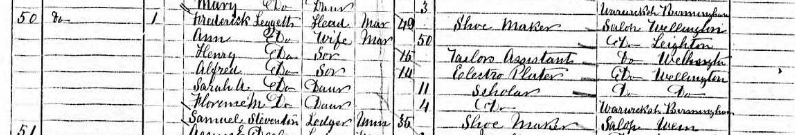 Mary Do Daur 3 Warwicksh Birmingham
50 Do 1 Frederick Leggett Head Mar 49 Shoe Maker Salop Wellington
Ann Do Wife Mar 50 Do Leighton
Henry Do Son 15 Tailors Assistant Do Wellington
Alfred Do Son 14 Electro Plater Do Wellington
Sarah A Do Daur 11 Scholar Do Do
Florence M Do Daur 4 Do Warwicksh Birmingham
Samuel Steventon Lodger Unm 35 Shoe Maker Salop Wem
51